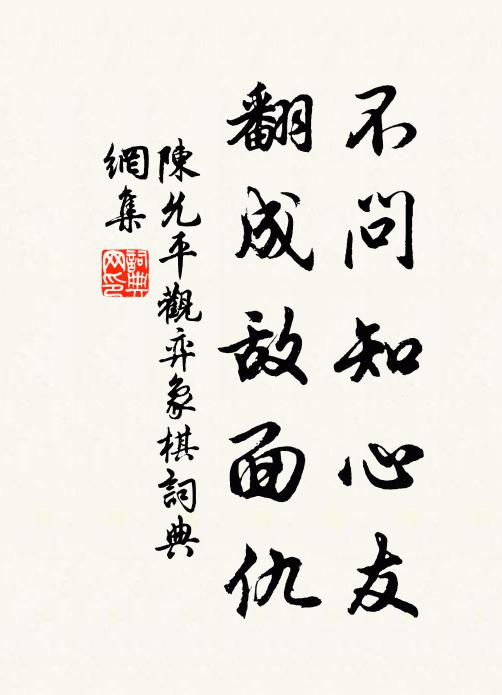 不問知心友
翻成敌面仇
陳允平觀弈象棋詞典
網集
詞典
网印